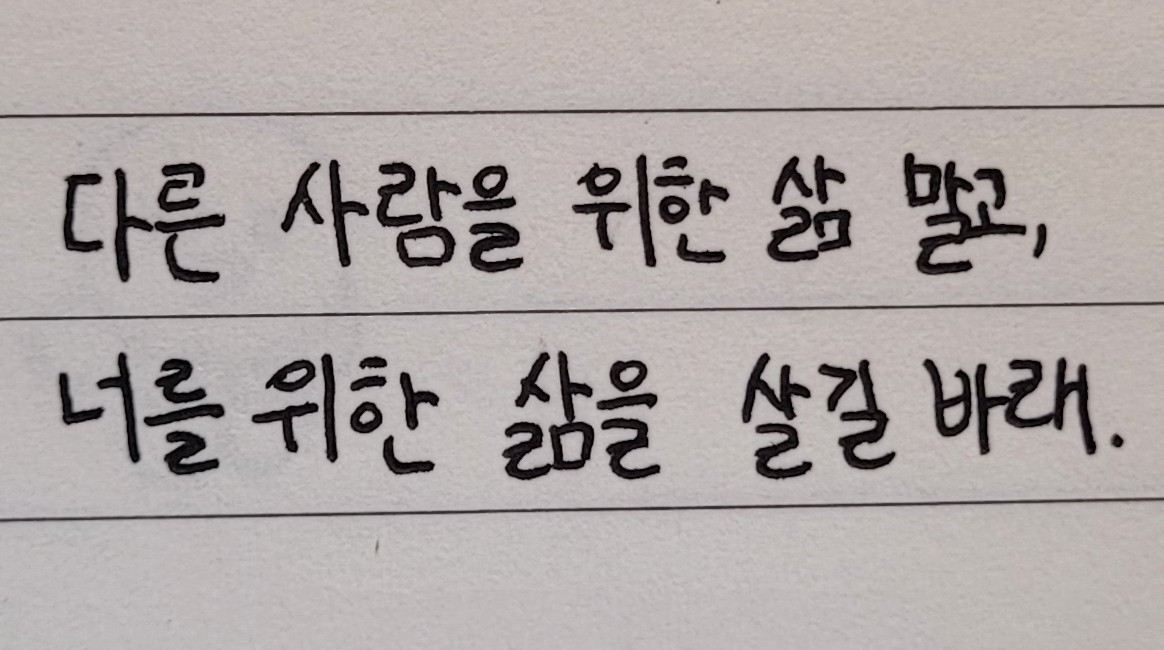 다른 사람을 위한 삶 말고,
너를 위한 삶을 살길 바래.